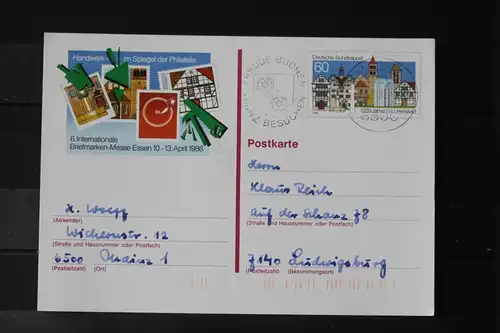 Handwerk im Spiegel der Philatelie
6. Internationale
Briefmarken-Messe Essen 10.-13. April 1986
BESUCHEN
Deutsche Bundespost
60
1250 Jahre Bad Hersfeld
Postkarte
Herrn
Klaus Reich
Auf der Schanz 78
(Straße und Hausnummer oder Postfach)
7140 Ludwigsburg
(Postleitzahl) (Bestimmungsort)
(Absender)
Wichernstr. 12
(Straße und Hausnummer oder Postfach)
6500 Mainz 1
(Postleitzahl) (Ort)